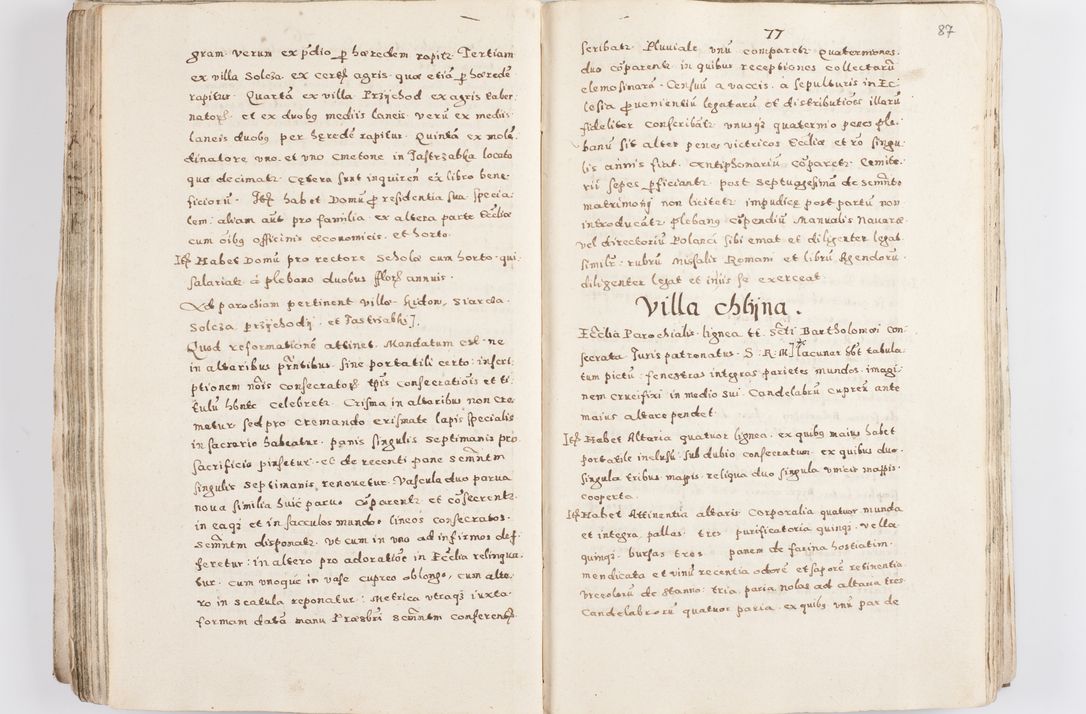 gram verum ex pdio p hæredem rapit Tertiam
ex villa Solcza ex certis agris quæ etiā p hærede
rapitur Quartā ex villa Przÿchod ex agris taber
nator et ex duobg mediis laneis verū ex mediis
laneis duobg per hęredē rapitur Quintā ex mole
dinatore uno et uno cmetone in Jastrzabka locato
qua decimat Cętera sunt inquirēn ex libro bene
ficiorū Itē habet Domū p residentia sua specia
lem aliam aut pro familia ex altera parte Ecclæ
cum oībg officinis œconomicis et horto
Itē Habet Domū pro rectore Scholæ cum horto qui
salariat à plebano duobus flor annuis
Ad parochiam pertinent villæ Kidow Siarcza
Solcza przÿchodÿ et Jastriabki].
Quod reformationē attinet Mandatum est ne
in altaribus pntibus sine portatili certo inseri
ptionem nois consecrator tpis consecratiois et ti
tulū hbntē celebret Crisma in altaribus non cre
metur sed pro cremando crismate lapis specialis
in sacrario habeatur panis singulis septimanis pro
sacrificio pinsetur et de recenti pane Scmntm
singulis septimanis renovetur Vascula duo parva
nova similia huic parvo cōparent et cōsecrent
in eaq et in sacculos mundos lineos consecratos
Scmntm disponat ut cum in uno ad infirmos def
feretur in altero pro adoratioē in Ecclia relinqua
tur cum unoque in vase cupreo oblongo, cum alte
ro in scatula reponatur Metrica utraq iuxta
formam datā manu Præsbri Scmntm conferent
77 87
scribat Pluviale unū comparet Quaterniones
duo cōparent in quibus receptiones collectarū
elemosinarū Censuū a vaccis a sepulturis in Ec
clesia pvenientiū legatarū et distributiōes illarū
fideliter conscribāt unusq quaternio penes ple
banū sit alter penes victricos Eccliæ et rō singu
lis annis fiat Antiphonariū cōparet Cemite
rii sepes pficiant post septuagesima de Scmnto
matrimonÿ non licitet impudice post partū non
introducāt plebang cōpendiū Manualis Navaræ
vel directoriū Polanci sibi emat et diligenter legat
similr rubrū Missalis Romani et librū Agendorū
diligenter legat et in iis se exerceat
Villa chlÿna.
Ecclia Parochialis lignea tt Scti Bartholomei con
secrata Juris patronatus S R M] lacunar hbt tabula
tum pictū fenestras integras parietes mundos imagi
nem crucifixi in medio sui Candelabrū cupreū ante
maius altare pendet
Itē Habet Altaria quatuor lignea ex quibg maius habet
portatile inclusū sub dubio consecratum ex quibus duo
singula tribus mappis reliqua duo singula unicis mappis
cooperta
Itē Habet Attinentia altaris Corporalia quatuor munda
et integra pallas tres purificatoria quinq vella
quinq bursas tres panem de farina hostiatim
mendicata et vinū recentia odorē et saporē retinentia
Vrceolorū de stanno tria paria nolas ad altaria tres
Candelabrorū quatuor paria ex quibg unū par de